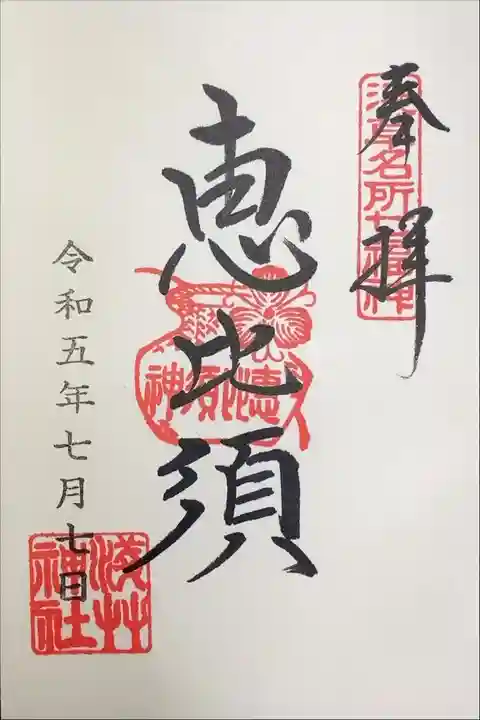 奉拝
浅草名所七福神
恵比須
恵比須神
令和五年七月七日
浅草神社